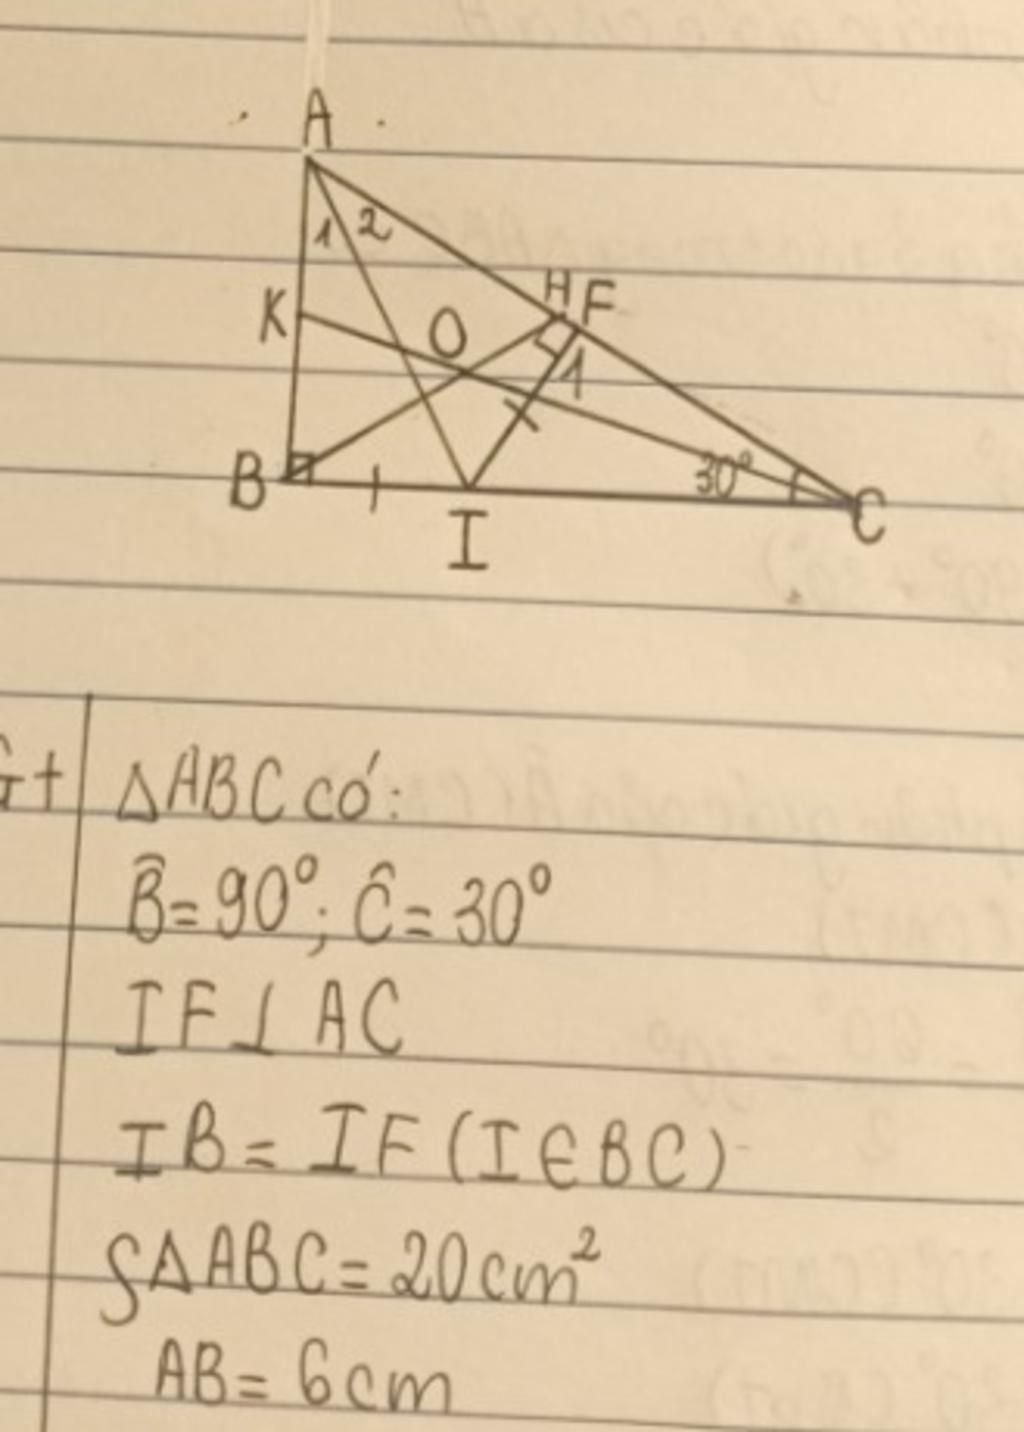 A
1 2
K
O
H F
1
B
30°
C
I
Gt
ΔABC có:
B̂ = 90°; Ĉ = 30°
IF ⊥ AC
IB = IF (I ∈ BC)
SΔABC = 20cm²
AB = 6cm